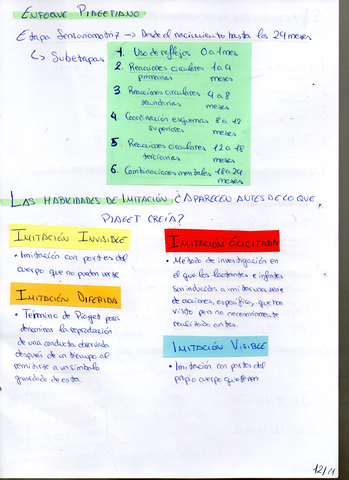 ENFOQUE PIAGETIANO
Etapa Sensoriomotriz → Desde el nacimiento hasta los 24 meses
↳ Subetapas
1. Uso de reflejos 0 a 1 mes
2. Reacciones circulares 1 a 4
primarias meses
3. Reacciones circulares 4 a 8
secundarias meses
4. Coordinación esquemas 8 a 12
superiores meses
5. Reacciones circulares 12 a 18
terciarias meses
6. Combinaciones mentales 18 a 24
meses
LAS HABILIDADES DE IMITACIÓN ¿APARECEN ANTES DE LO QUE
PIAGET CREÍA?
IMITACIÓN INVISIBLE
• Imitación con partes del
cuerpo que no pueden verse
IMITACIÓN DIFERIDA
• Término de Piaget para
denominar la reproducción
de una conducta observada
después de un tiempo al
remitirse a un símbolo
guardado de esta.
IMITACIÓN ELICITADA
• Método de investigación en
el que los lactantes e infantes
son inducidos a imitar una serie
de acciones, específica, que han
visto pero no necesariamente
realizado antes.
IMITACIÓN VISIBLE
• Imitación con partes del
propio cuerpo que se ven
12/4